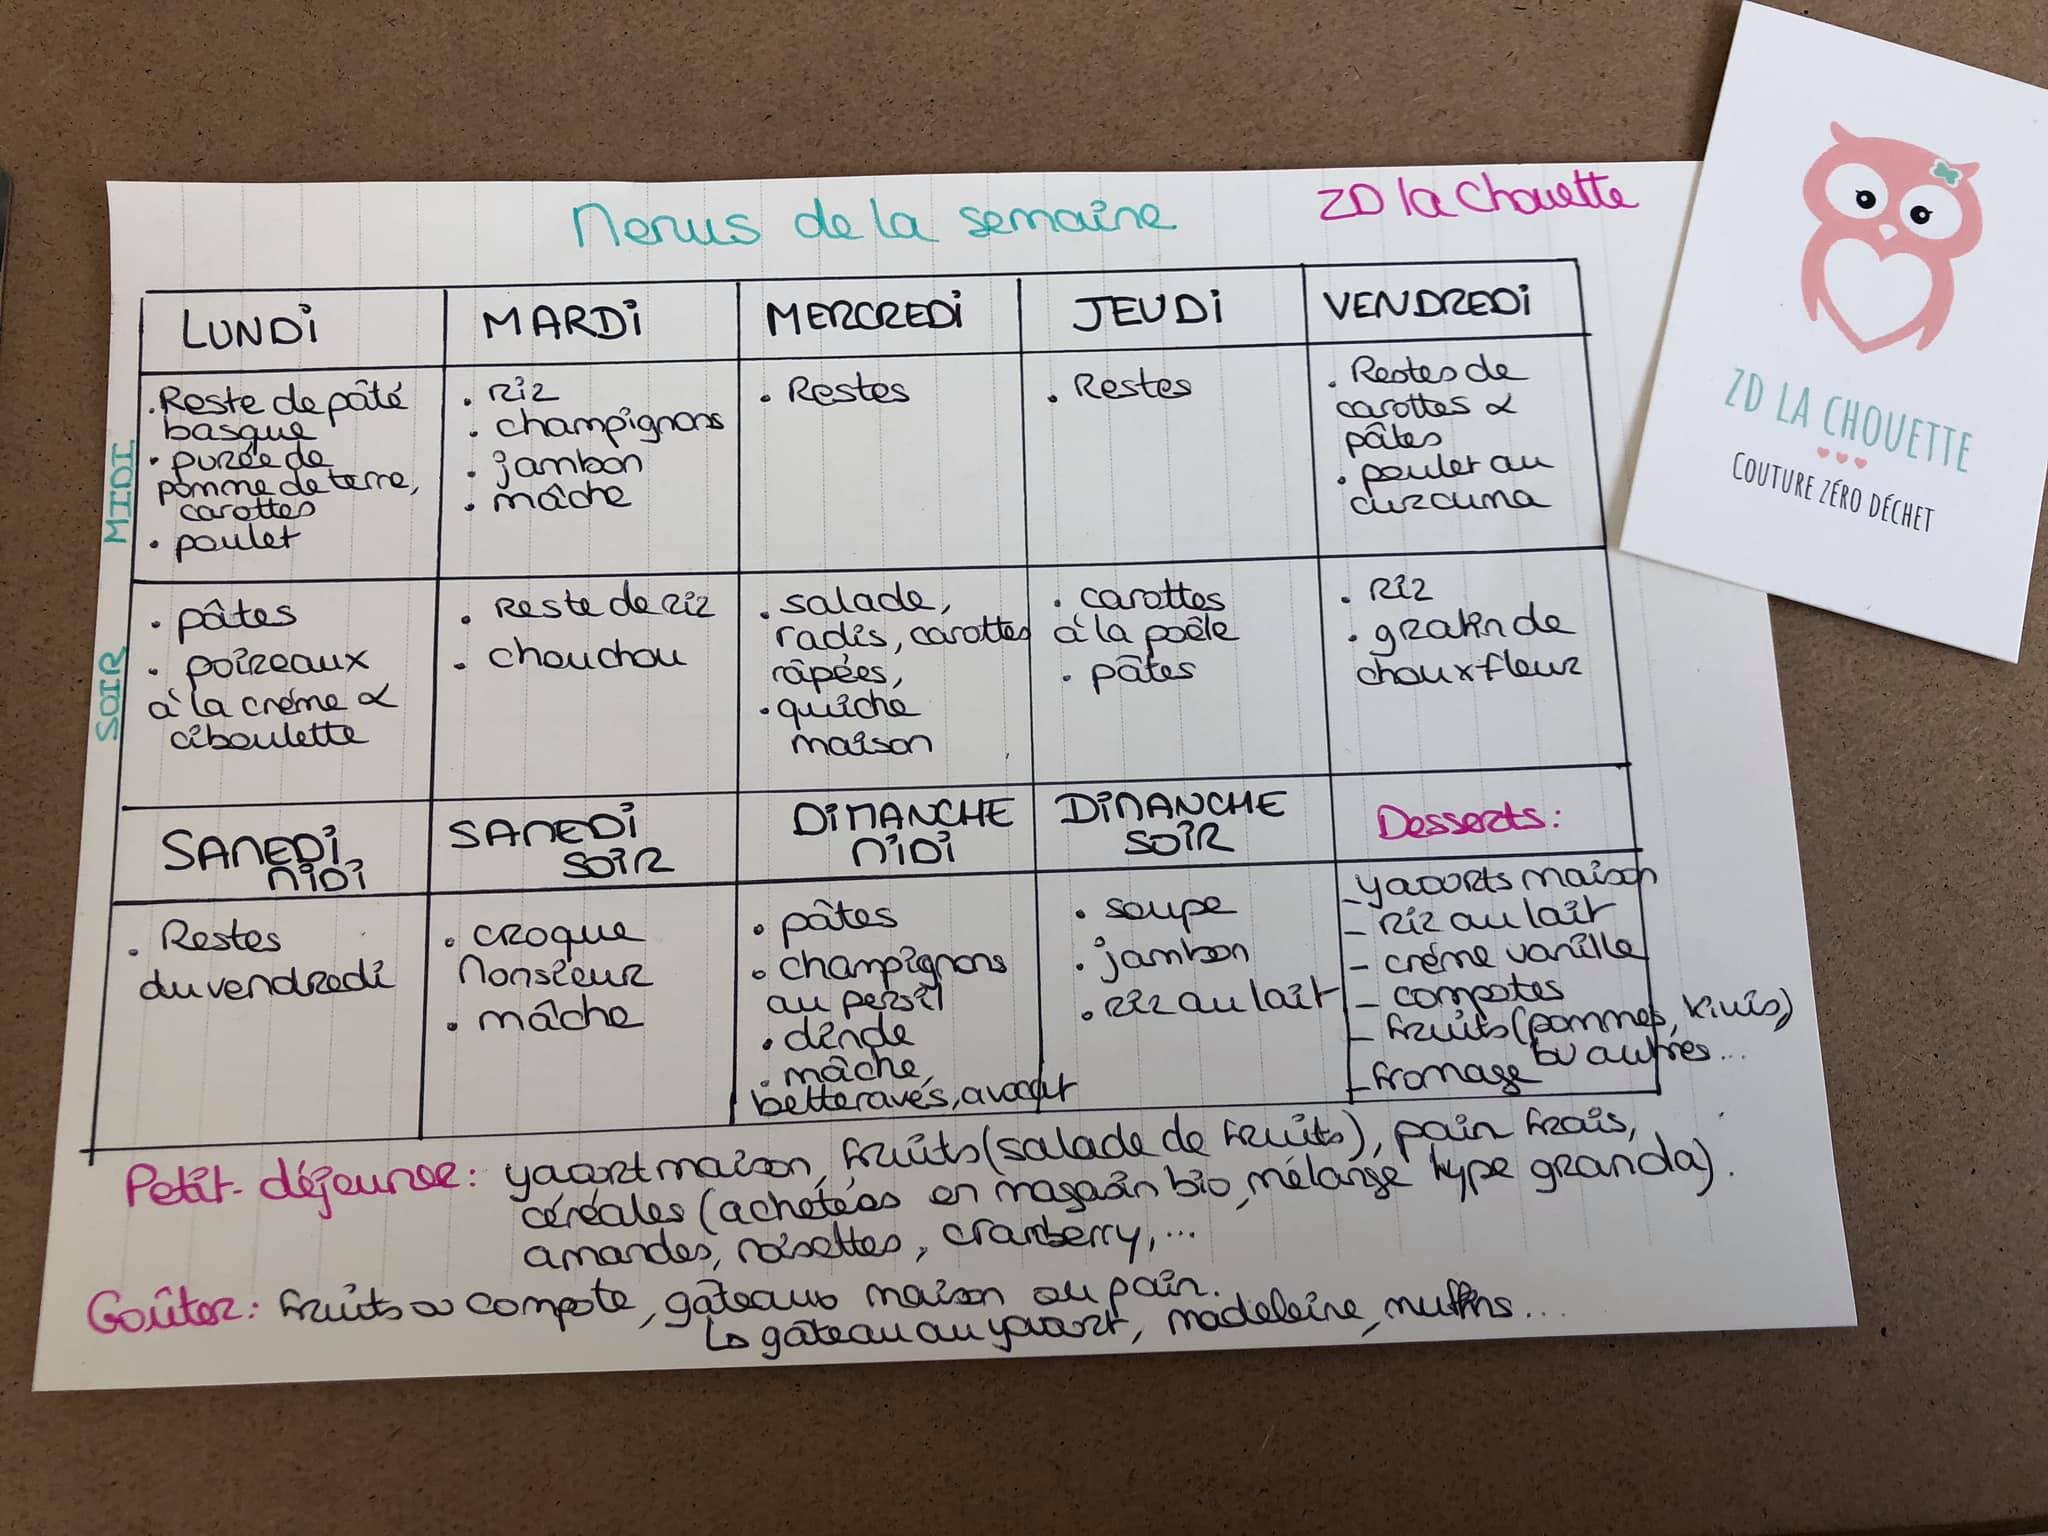 Menus de la semaine
ZD la Chouette
LUNDI
MARDI
MERCREDI
JEUDI
VENDREDI
MIDI
. Reste de pâté
basque
. purée de
pomme de terre,
carottes
. poulet
. riz
. champignons
. jambon
. mâche
. Restes
. Restes
. Restes de
carottes &
pâtes
. poulet au
curcuma
SOIR
. pâtes
. poireaux
à la crème &
ciboulette
. Reste de riz
. chouchou
. salade,
radis, carottes
râpées,
. quiche
maison
. carottes
à la poêle
. pâtes
. riz
. gratin de
choux fleur
SAMEDI
MIDI
SAMEDI
SOIR
DIMANCHE
MIDI
DIMANCHE
SOIR
Desserts :
. Restes
du vendredi
. croque
Monsieur
. mâche
. pâtes
. champignons
au persil
. dinde
. mâche,
betteraves, avocat
. soupe
. jambon
. riz au lait
- yaourts maison
- riz au lait
- crème vanille
- compotes
- fruits (pommes, kiwis,)
ou autres...
- fromage
Petit-déjeuner : yaourt maison, fruits (salade de fruits), pain frais,
céréales (achetées en magasin bio, mélange type granola).
amandes, noisettes, cranberry,...
Goûter : fruits ou compote, gâteaux maison ou pain.
↳ gâteau au yaourt, madeleine, muffins...
ZD LA CHOUETTE
COUTURE ZÉRO DÉCHET